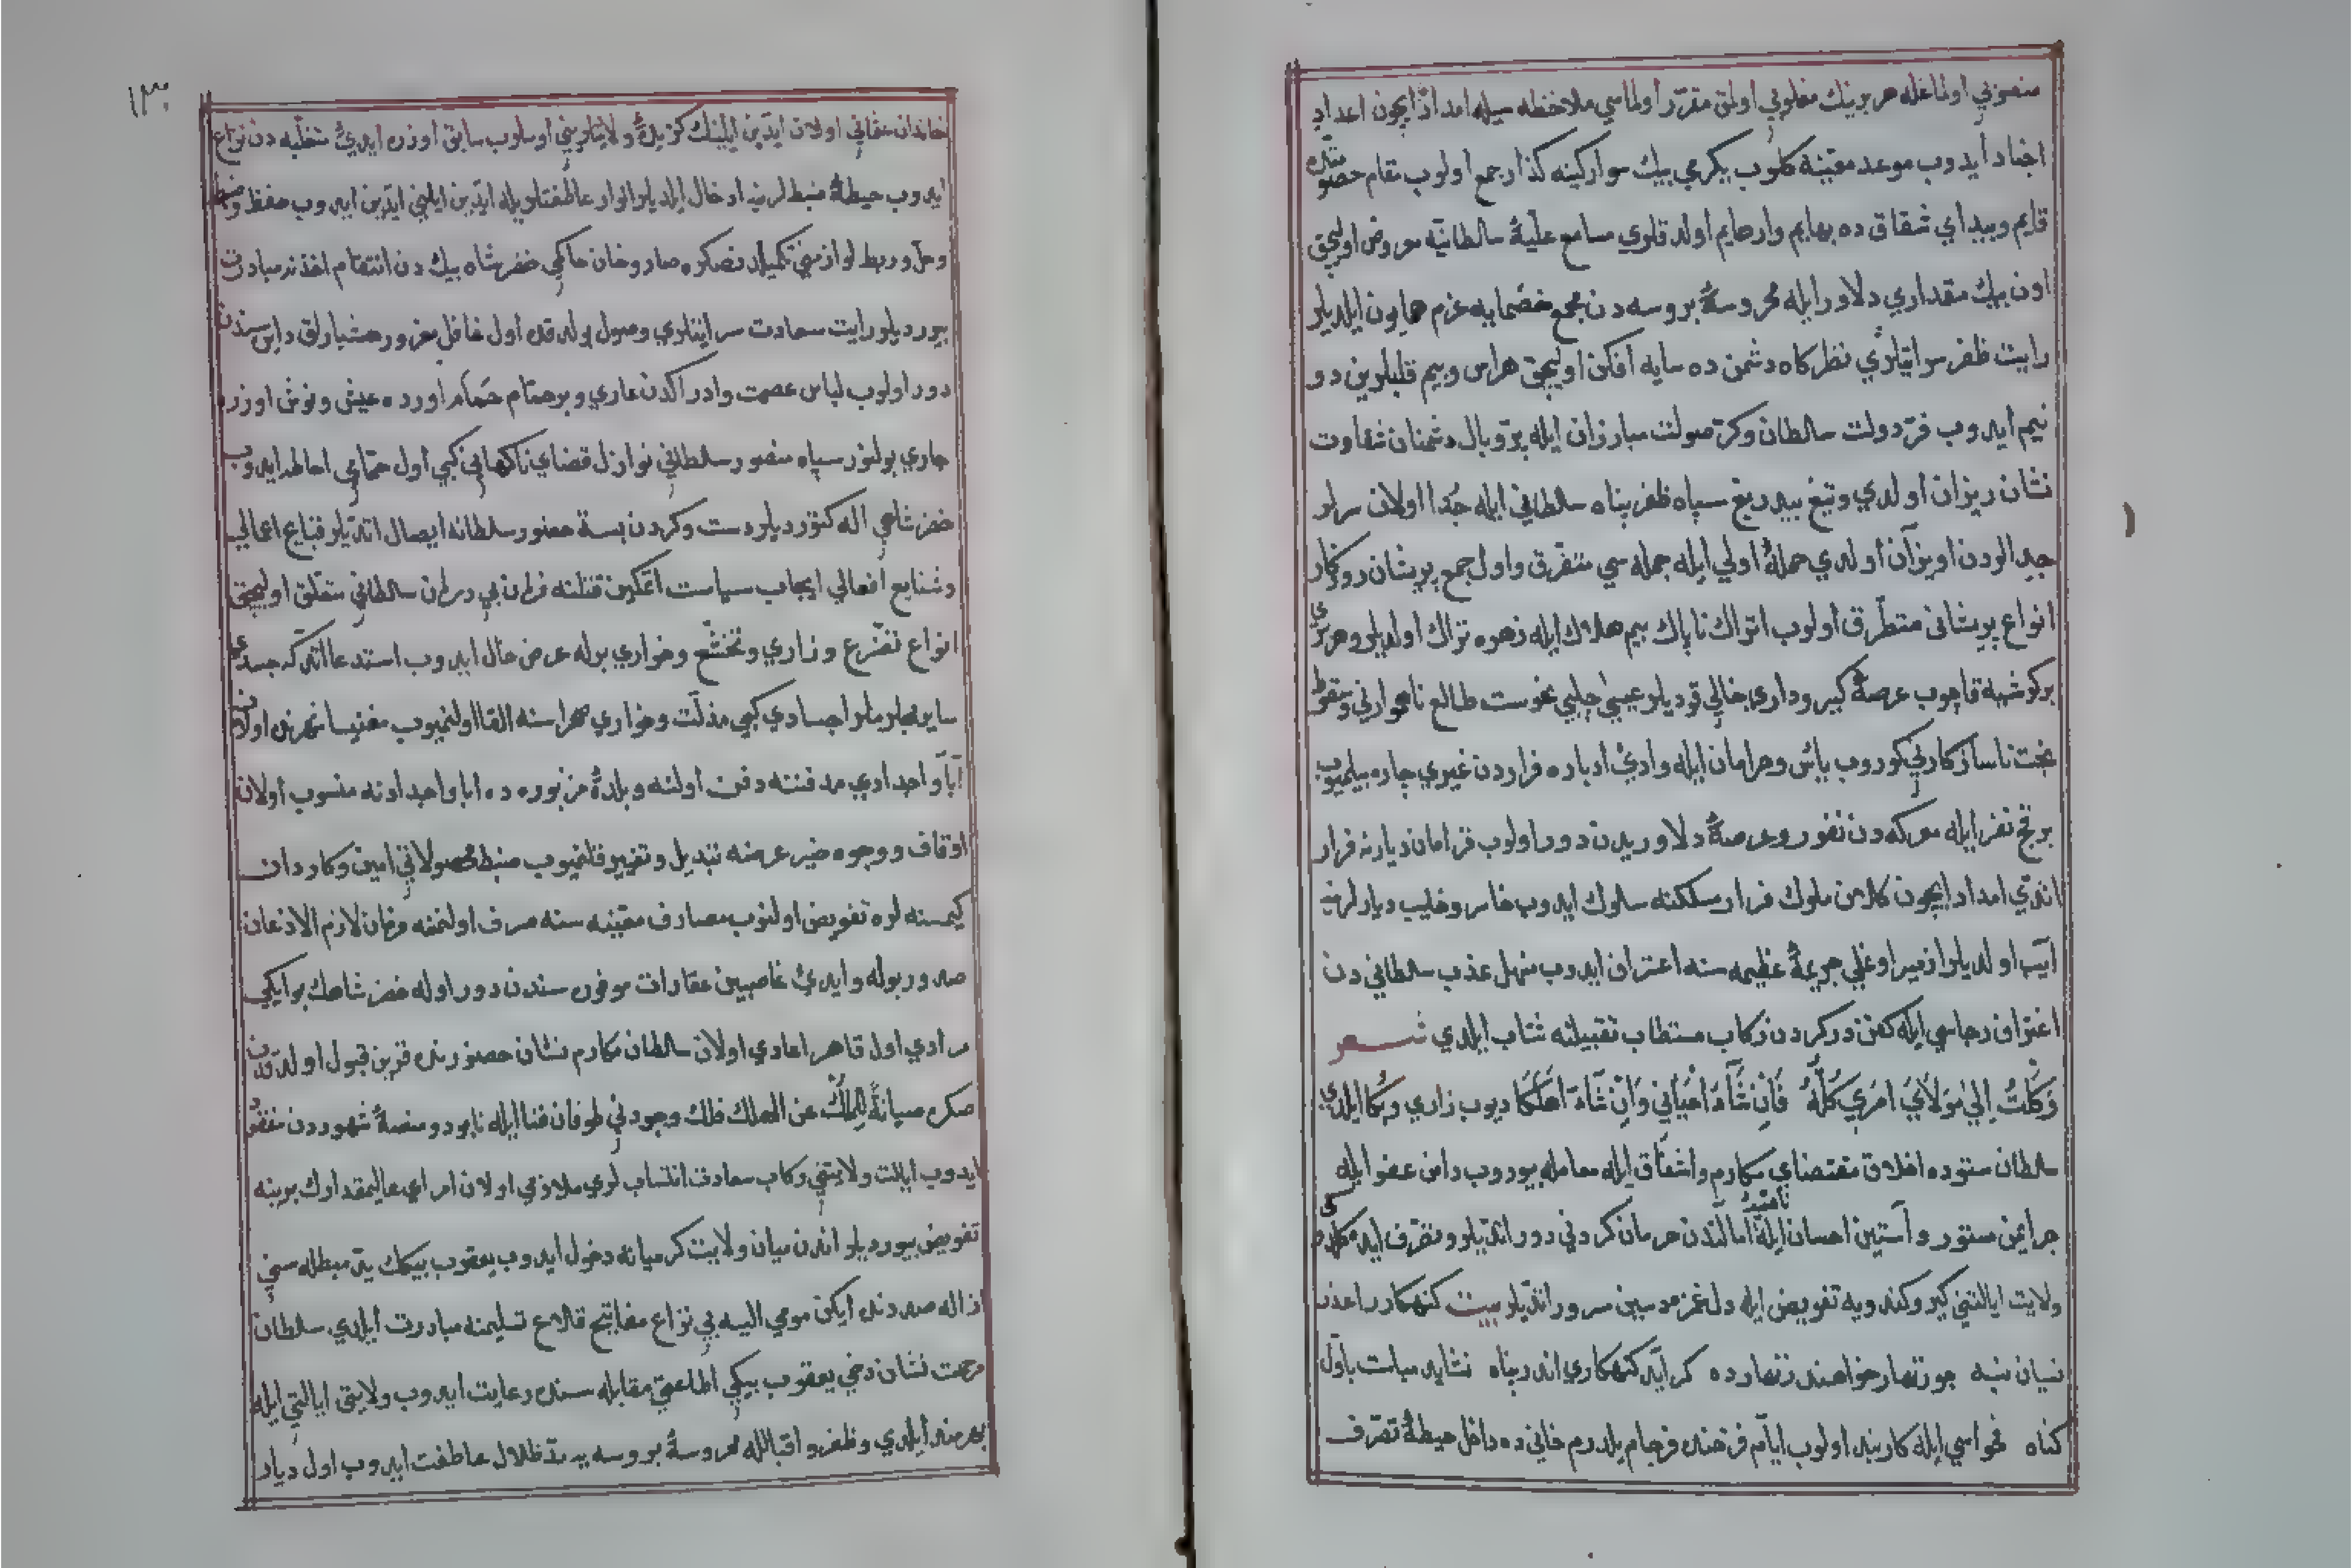 منصوبی اولماغله هر برینك مغلوبی اولمق مقرر اولماسی ملاحظه سیله امداد ایچون اعداد
اجناد ایدوب موعد معینه كلوب یكرمی بیك سوار كینه كذار جمع اولوب مقام حضومتده
قایم وبیدای شقاق ده بهایم وارهایم اولدقلری مسامع علیهٔ سالطانیه معروض اولیجق
اون بیك مقداری دلاورایله محروسهٔ بروسه دن مجمع خصمایه عزم همایون ایلدیلر
رایت ظفر سرایتلری نظركاه دشمن ده سایه افكن اولیجق هراس وبیم قلبلرین دو
نیم ایدوب فر دولت سالطان وكر صولت مبارزان ایله پر وبال دشمنان شقاوت
نشان ریزان اولدی وتیغ بیدریغ سپاه ظفرپناه سلطانی ایله جدا اولان سرلر
جدالودن اویزان اولدی حملهٔ اولی ایله جمله سی متفرق واول جمع پریشان روزكار
انواع پریشانی متطرق اولوب اتراك ناپاك بیم هلاك ایله زهره تراك اولدیلر وهر بری
بر كوشیه قاچوب عرصهٔ كیروداری خالی قودیلر عیسی چلبی نحوست طالع ناهمواری وسقوط
بخت ناسازكارنی كوروب یأس وحرمان ایله وادئ ادباره فراردن غیری چاره بیلمیوب
بر قچ نفر ایله معركه دن نفور وعرصهٔ دلاوریدن دور اولوب قرامان دیارنه فرار
اتدی امداد ایچون كلان ملوك فرار مسلكنه سلوك ایدوب خاسر وخایب دیارلرنه
آیب اولدیلر ازمیراوغلی جریمهٔ عظیمه سنه اعتراف ایدوب منهل عذب سلطانی دن
اغتراف رجاسی ایله كفن دركردن ركاب مستطاب تقبیلنه شتاب ایلدی شعر
وَكَلْتُ اِلیٰ مَوْلَایَ اَمْرِی كُلَّهُ فَاِنْ شَآءَ اَحْیَانِی وَاِنْ شَآءَ اَهْلَكَا دیوب زاری وبكا ایلدی
سالطان ستوده اخلاق مقتضای مكارم واشفاق ایله معامله بیوروب دامن عفو ایله
جرایمن مستور وآستین احسان ایله امالندن حرمان كردنی دور اتدیلر
ولایت ایالتنی كیرو كندویه تفویض ایله دلغمزده سین مسرور اتدیلر بیت كنهكاررا عذر
نسیان بنه چو زنهار خواهند زنهار ده كر آید كنهكاری اندر پناه نشاید سیاست باول
كناه فحواسی ایله كاربند اولوب ایام فرخنده فرجام یلدرم خانی ده داخل حیطهٔ تصرف
١٣٠
خاندان عثمانی اولان ایدین ایلینك كزیدهٔ ولایتلرینی اوسلوب سابق اوزره ایدئ متغلبه دن نزاع
ایدوب حیطهٔ ضبطلرینه ادخال ایلدیلر انوار عاطفتلریله ایدین ایلینی ایدین ایدوب حفظ وضبط
وحل وربط لوازمنی تكمیلدنصكره صاروخان حاكمی خضرشاه بیك دن انتقام اخذنه مبادرت
بیوردیلر رایت سعادت سرایتلری وصول بولدقده اول غافل مغرور هشیارلق دایره سندن
دور اولوب لباس عصمت وادراكدن عاری وبر حمام اورده عیش ونوش اوزره
جاری بولنور سپاه منصور سالطانی نوازل قضای ناكهانی كبی اول حمامی احاطه ایدوب
خضرشاهی اله كتوردیلر دست وكردن بسته حضور سلطانه ایصال اتدیلر قبایح اعمالی
وشنایع افعالی ایجاب سیاست اتمكین قتلنه فرمان سالطانی متعلق اولیجق
انواع تضرع وزاری وتخشع وخواری بوله عرض حال ایدوب استدعا اتدكه جسدی
سایر مجرملر اجسادی كبی مذلت وخواری صحراسنه القا اولنمیوب مغنیسا شهرنده اولان
آبا واجدادی مدفننه دفن اولنه وبلدهٔ مزبوره ده ابا واجدادنه منسوب اولان
اوقاف ووجوه خیر عرضه تبدیل وتغییر قلنمیوب ضبط محصولانی امین وكاردان
كیمسنه لره تفویض اولنوب مصارف معینه سنه صرف اولنمغه فرمان لازم الاذعان
صدور بوله وایدئ غاصبین عقارات موفوره سندن دور اوله خضر شاهك بو ایكی
مرادی اول قاهر اعادی اولان سالطان مكارم نشان حضورنده قرین قبول اولدقدن
صكره صیانةً لِلْمُلْكِ عن الهلك فلك وجودنی طوفان فنا ایله نابود ومنصهٔ شهوددن مفقود
ایدوب ایالت ولایتنی ركاب سعادت انتسابلری ملازمی اولان امرای عالیمقدارك برینه
تفویض بیوردیلر اندن میان ولایت كرمیانه دخول ایدوب یعقوب بیكك ید مبطله سنی
ازاله صددنده ایكن مومی الیه بی نزاع مفاتیح قلاع تسلیمنه مبادرت ایلدی سلطان
مرحمت نشان دخی یعقوب بیكی اطاعتی مقابله سنده رعایت ایدوب ولایتی ایالتی ایله
بهره مند ایلدی وظفر واقبالله محروسهٔ بروسه یه مد ظلال عاطفت ایدوب اول دیار